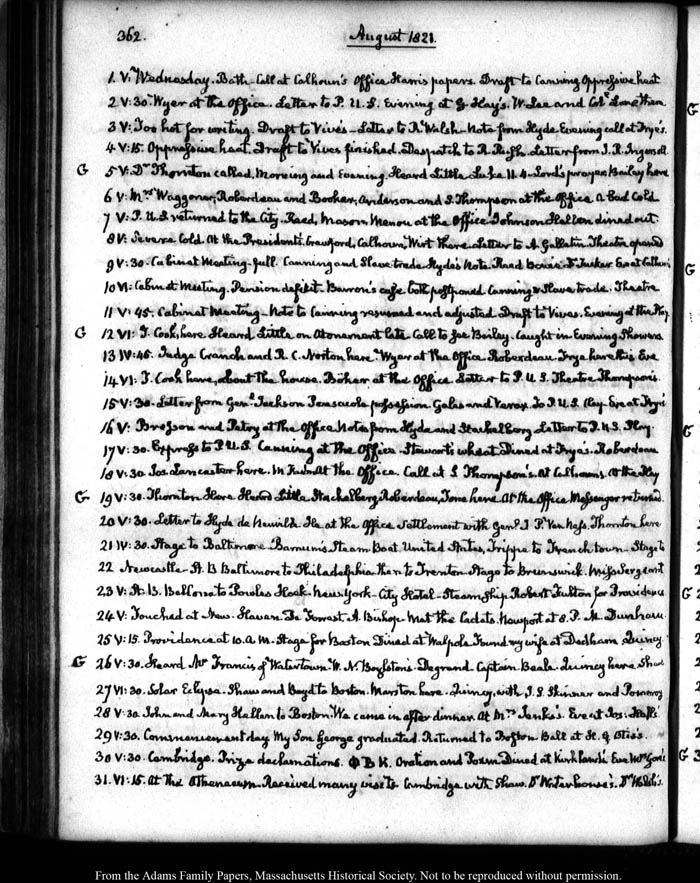 362.
August 1821.
1. V. Wednesday. Bath. Call at Calhoun's Office Harris papers. Draft to Canning Oppressive heat
2 V:30. Wyer at the Office. Letter to P. U. S. Evening at G Hay's. W. Lee and Lane there
3 V: Too hot for writing. Draft to Vives. Letter to R. Walsh. Note from Hyde Evening call at Frye's.
4 V:15. Oppressive heat. Draft to Vives finished. Despatch to R. Rush. Letter from J. R. Ingersoll
G 5 V: Dr Thornton called, Morning and Evening. Heard Little Luke 11.4. Lord's prayer Bailey here
6 V: Mrs Waggoner, Roberdeau and Booker, Anderson and J. Thompson at the Office A bad Cold
7 V: P. U. S returned to the City. Reed, Mason, Menou at the Office Johnson Hellen dined out.
8 V: Severe Cold. At the Presidents. Crawford, Calhoun, Wirt there. Letter to A. Gallatin Theatre opened
9 V:30. Cabinet Meeting full. Canning and Slave trade. Hyde's Note. Reed Tucker Eve at Calhoun's
10 VI: Cabinet Meeting. Pension deficit. Barron's case both postponed Canning & Slave trade. Theatre
11 V:45. Cabinet Meeting. Note to Canning revised and adjusted. Draft to Vives. Evening at the Play
G 12 VI: J. Cook, here Heard Little on Atonement late Call to Joe Bailey. Caught in Evening Showers
13 IV:45. Judge Cranch and R. C. Norton here. Wyer at the Office. Roberdeau. Frye here this Eve
14 VI: J. Cook here, about the house. at the Office Letter to P. U. S. Theatre Thompson's.
15 V:30. Letter from Genl Jackson Pensacola possession Galas and Yaros. To P. U. S. Play. Eve at Frye's
16 V: Bresson and Petry at the Office Notes from Hyde and Stackelberg Letter to P. U. S. Play.
17 V:30. Express to P. U. S. Canning at the Office. Stewart's wheat Dined at Frye's. Roberdeau
18 V:30 Jos. Lancaster here. At the Office. Call at S Thompson's. At Calhouns. At the Play
G 19 V:30. Thornton Here Heard Little Stackelberg, Roberdeau, Jone here At the Office Messenger returned.
20 V:30. Letter to Hyde de Neuville. He at the Office Settlement with Genl J. P. Van Ness. Thornton here
21 IV:30. Stage to Baltimore Barnum's Steam Boat. United States, Trippe to French town. Stage to
22 Newcastle. St. B Baltimore to Philadelphia then to Trenton Stage to Brunswick. Miss Sergeant
23 V: St. B. Bellona to Powles Hook. New York. City Hotel. Steam Ship Robert Fulton for Providence
24 V: Touched at New Haven. De Forrest A. Bishop. Met the Cadets. Newport at 8. P. M. Dunham
25 V:15. Providence at 10. A. M. Stage for Boston Dined at Walpole Found my wife at Dedham Quincy
G 26 V:30. Heard Mr Francis of Watertown. W. N. Boylston's. Degrand. Captain Beale. Quincy here. Shaw
27 VI:30. Solar Eclipse. Shaw and Boyd to Boston. Marston here. Quincy, with J. S. Skinner and Pomeroy
28 V:30 John and Mary Hellen to Boston. We came in after dinner. At Mrs Jenks's. Eve at Jos. Hall's
29 V:30. Commencement day My Son George graduated. Returned to Boston. Ball at H. G. Otis's.
30 V:30. Cambridge. Prize declamations. Φ B K. Oration and Poem. Dined at Kirkland's Eve
31. VI:15. At the Athenaeum. Received many visits Cambridge with Shaw. Dr Waterhouse's. Dr Welsh's.
From the Adams Family Papers, Massachusetts Historical Society. Not to be reproduced without permission.